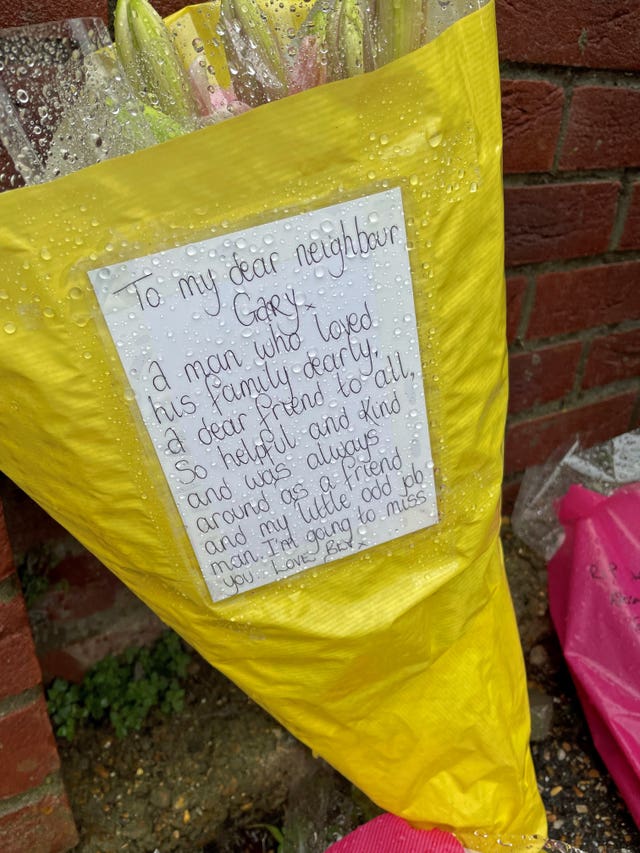 To my dear neighbour
Gary x
a man who loved
his family dearly,
a dear friend to all,
So helpful and kind
and was always
around as a friend
and my little odd job
man. I'm going to miss
you. LOVE BEV x
R.I.P